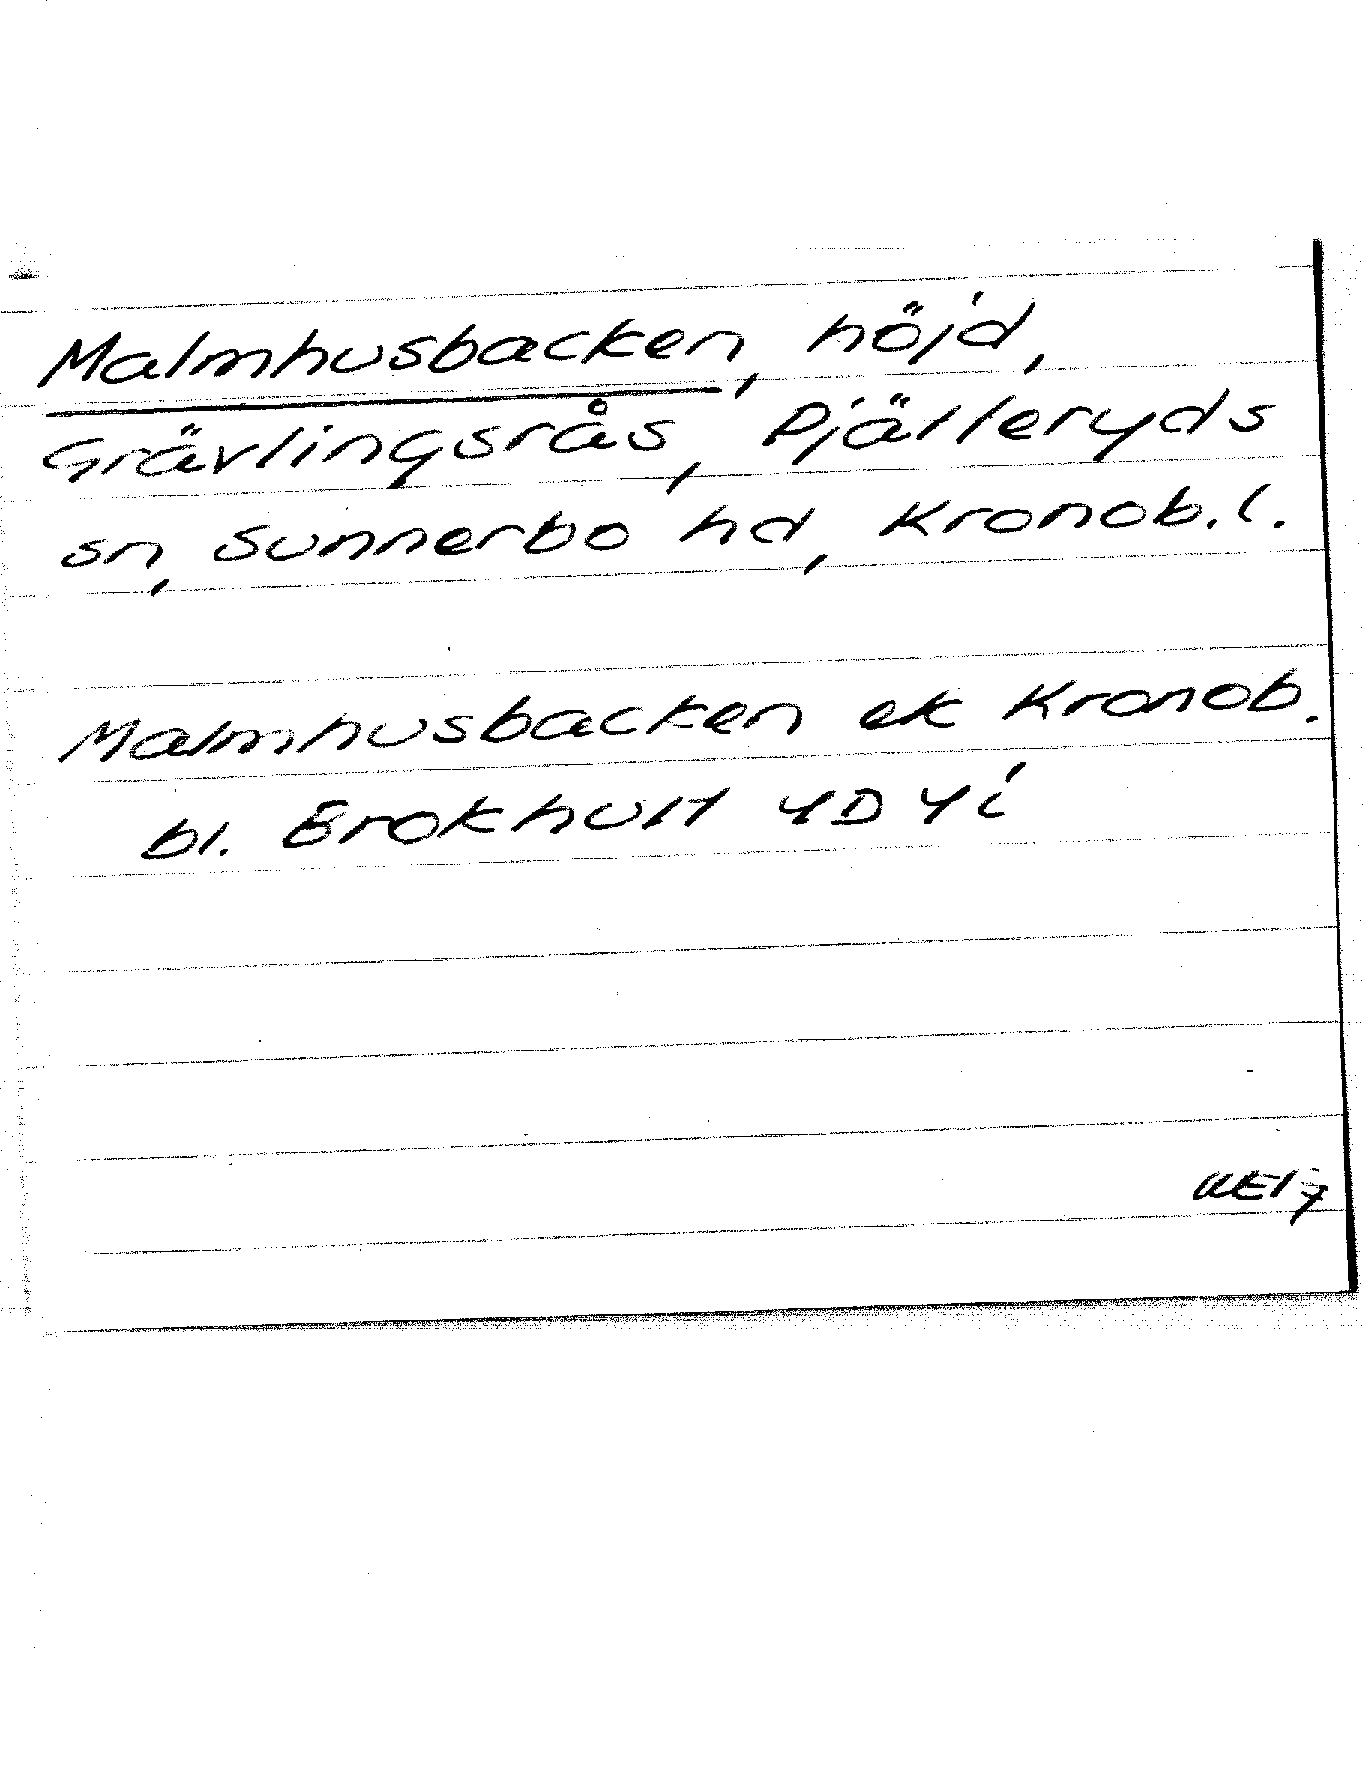 Malmhusbacken, höjd,
Grävlingsrås, Pjätteryds
sn, Sunnerbo hd, Kronob. l.
Malmhusbacken ek Kronob.
bl. Brokhult 4D 4i